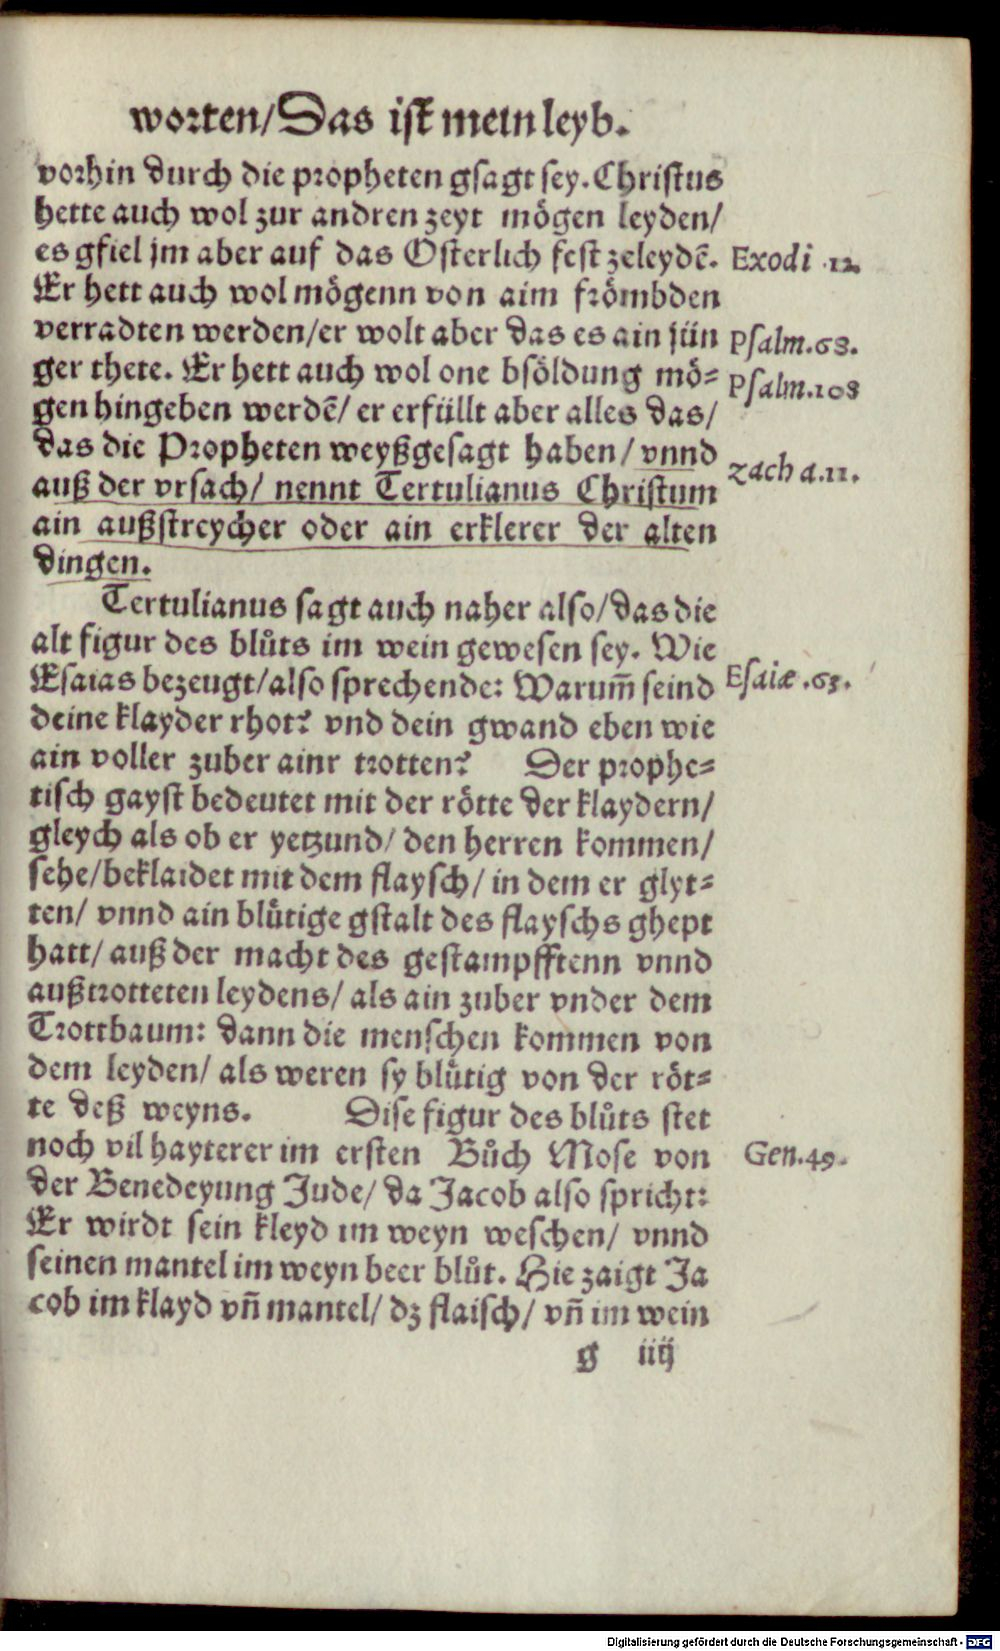 worten/Das ist mein leyb.
vorhin durch die propheten gsagt sey. Christus
hette auch wol zur andren zeyt mögen leyden/
es gfiel jm aber auf das Osterlich fest zeleydē. Exodi 12.
Er hett auch wol mögenn von aim frömbden
verradten werden/er wolt aber das es ain jün Psalm.68.
ger thete. Er hett auch wol one bsöldung mö= Psalm.108
gen hingeben werdē/ er erfüllt aber alles das/
das die Propheten weyßgesagt haben/ vnnd zach a.11.
auß der vrsach/ nennt Tertulianus Christum
ain außstreycher oder ain erklerer der alten
dingen.
Tertulianus sagt auch naher also/das die
alt figur des blůts im wein gewesen sey. Wie
Esaias bezeugt/also sprechende: Warum̄ seind Esaiæ.63.
deine klayder rhot? vnd dein gwand eben wie
ain voller zuber ainr trotten? Der prophe=
tisch gayst bedeutet mit der rötte der klaydern/
gleych als ob er yetzund/ den herren kommen/
sehe/beklaidet mit dem flaysch/ in dem er glyt=
ten/ vnnd ain blütige gstalt des flayschs ghept
hatt/ auß der macht des gestampfftenn vnnd
außtrotteten leydens/ als ain zuber vnder dem
Trottbaum: dann die menschen kommen von
dem leyden/ als weren sy blütig von der röt=
te deß weyns. Dise figur des blůts stet
noch vil hayterer im ersten Bůch Mose von Gen.49.
der Benedeyung Jude/ da Jacob also spricht:
Er wirdt sein kleyd im weyn weschen/ vnnd
seinen mantel im weyn beer blůt. Hie zaigt Ja
cob im klayd vn̄ mantel/ dz flaisch/ vn̄ im wein
g iiij
Digitalisierung gefördert durch die Deutsche Forschungsgemeinschaft - DFG